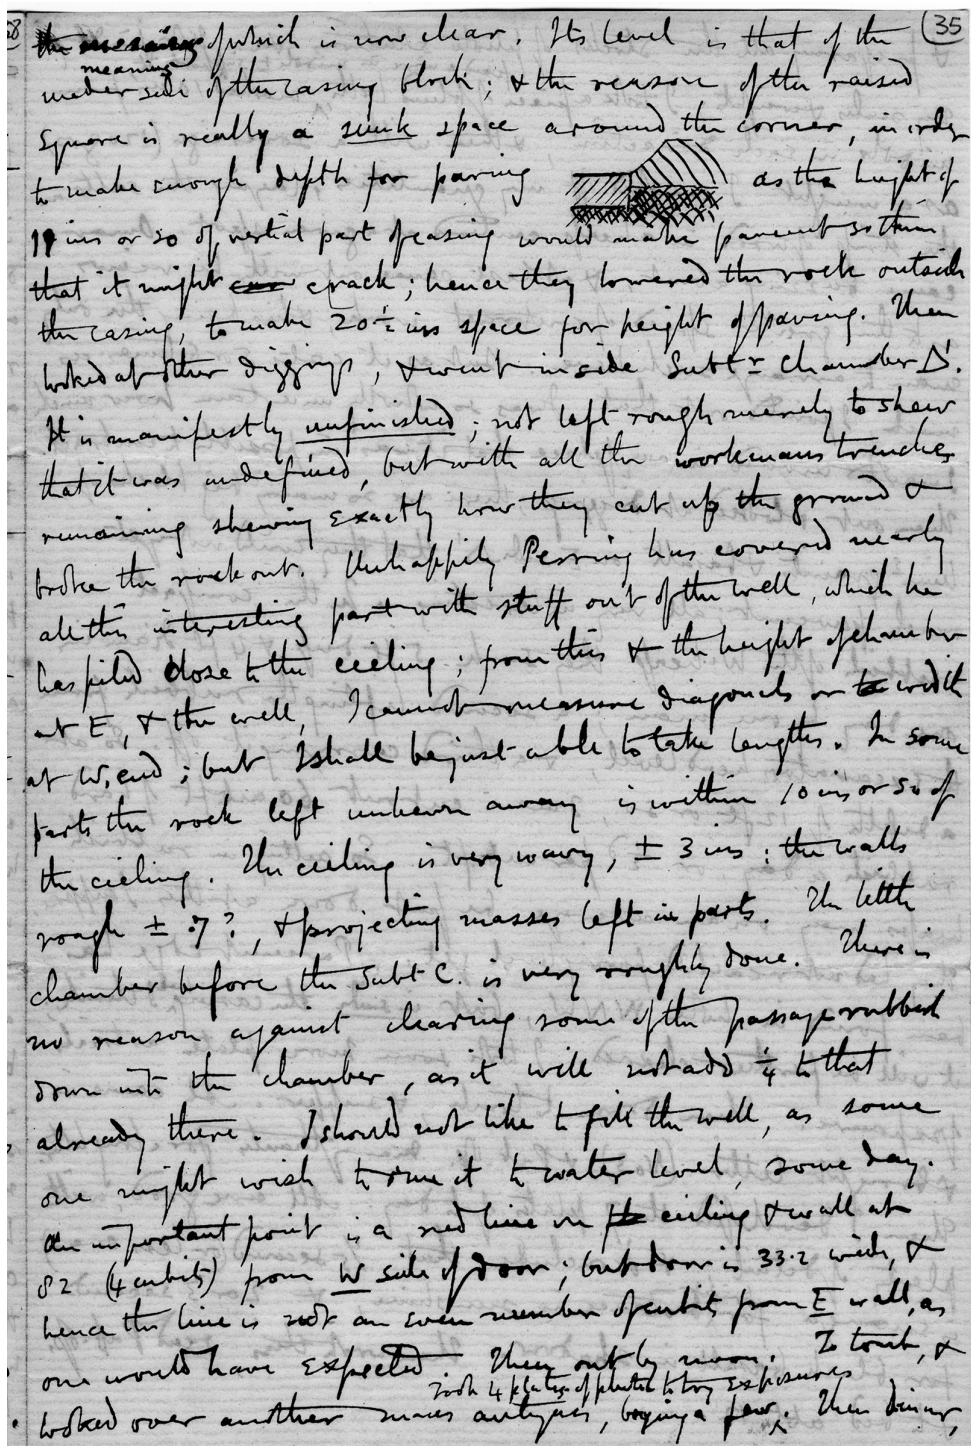 35
the meaning of which is now clear. Its level is that of the
meaning
under side of the casing block; & the reason of the raised
square is really a sunk space around the corner, in order
to make enough depth for paving as the height of
19 ins or so of vertical part of casing would make pavement so thin
that it might crack; hence they lowered the rock outside
the casing, to make 20½ ins space for height of paving. Then
looked at other diggings, & went inside Subtr chamber Δ1.
It is manifestly unfinished; not left rough merely to shew
that it was undefined, but with all the workmans trenches
remaining shewing exactly how they cut up the ground &
broke the rock out. Unhappily Perring has covered nearly
all this interesting part with stuff out of the well, which he
has piled close to the ceiling; from this & the height of chamber
at E, & the well, I cannot measure diagonals or width
at W. end; but I shall be just able to take lengths. In some
parts the rock left unhewn away is within 10 ins or so of
the cieling. The cieling is very wavy, ± 3 ins: the walls
rough ± .7?, & projecting masses left in parts. The little
chamber before the Subt C. is very roughly done. There is
no reason against clearing some of the passage rubbish
down into the chamber, as it will not add ¼ to that
already there. I should not like to fill the well, as some
one might wish to sink it to water level, some day.
An important point is a red line on cieling & wall at
82 (4 cubits) from W side of door; but door is 33.2 wide, &
hence the line is not an even number of cubits from E wall, as
one would have expected. Then out by noon. To tomb, &
Took 4 plates of photos to try exposures
looked over another mans antiques, buying a few. Then dinner,